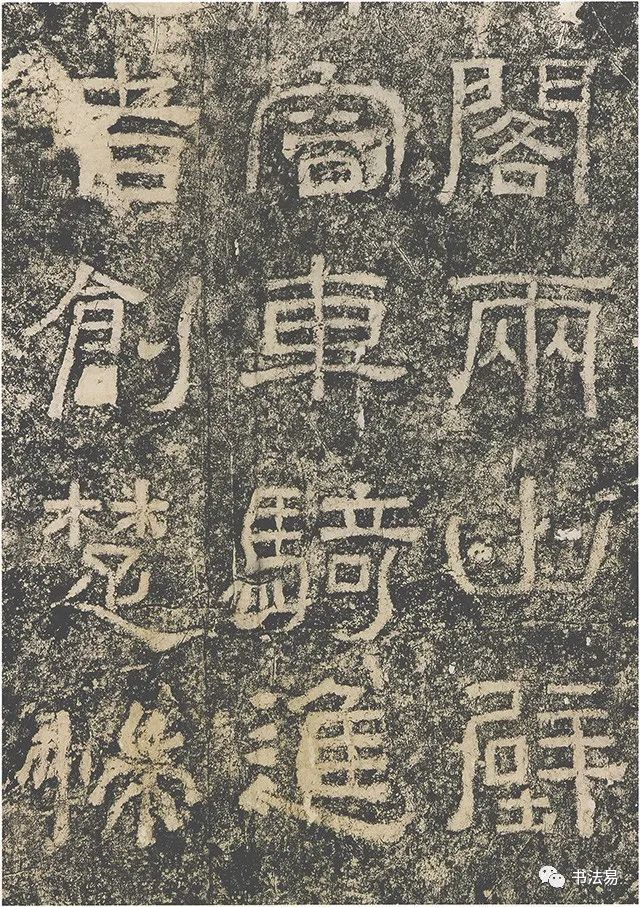 閣兩山壁
容車騎進
者創楚
书法易